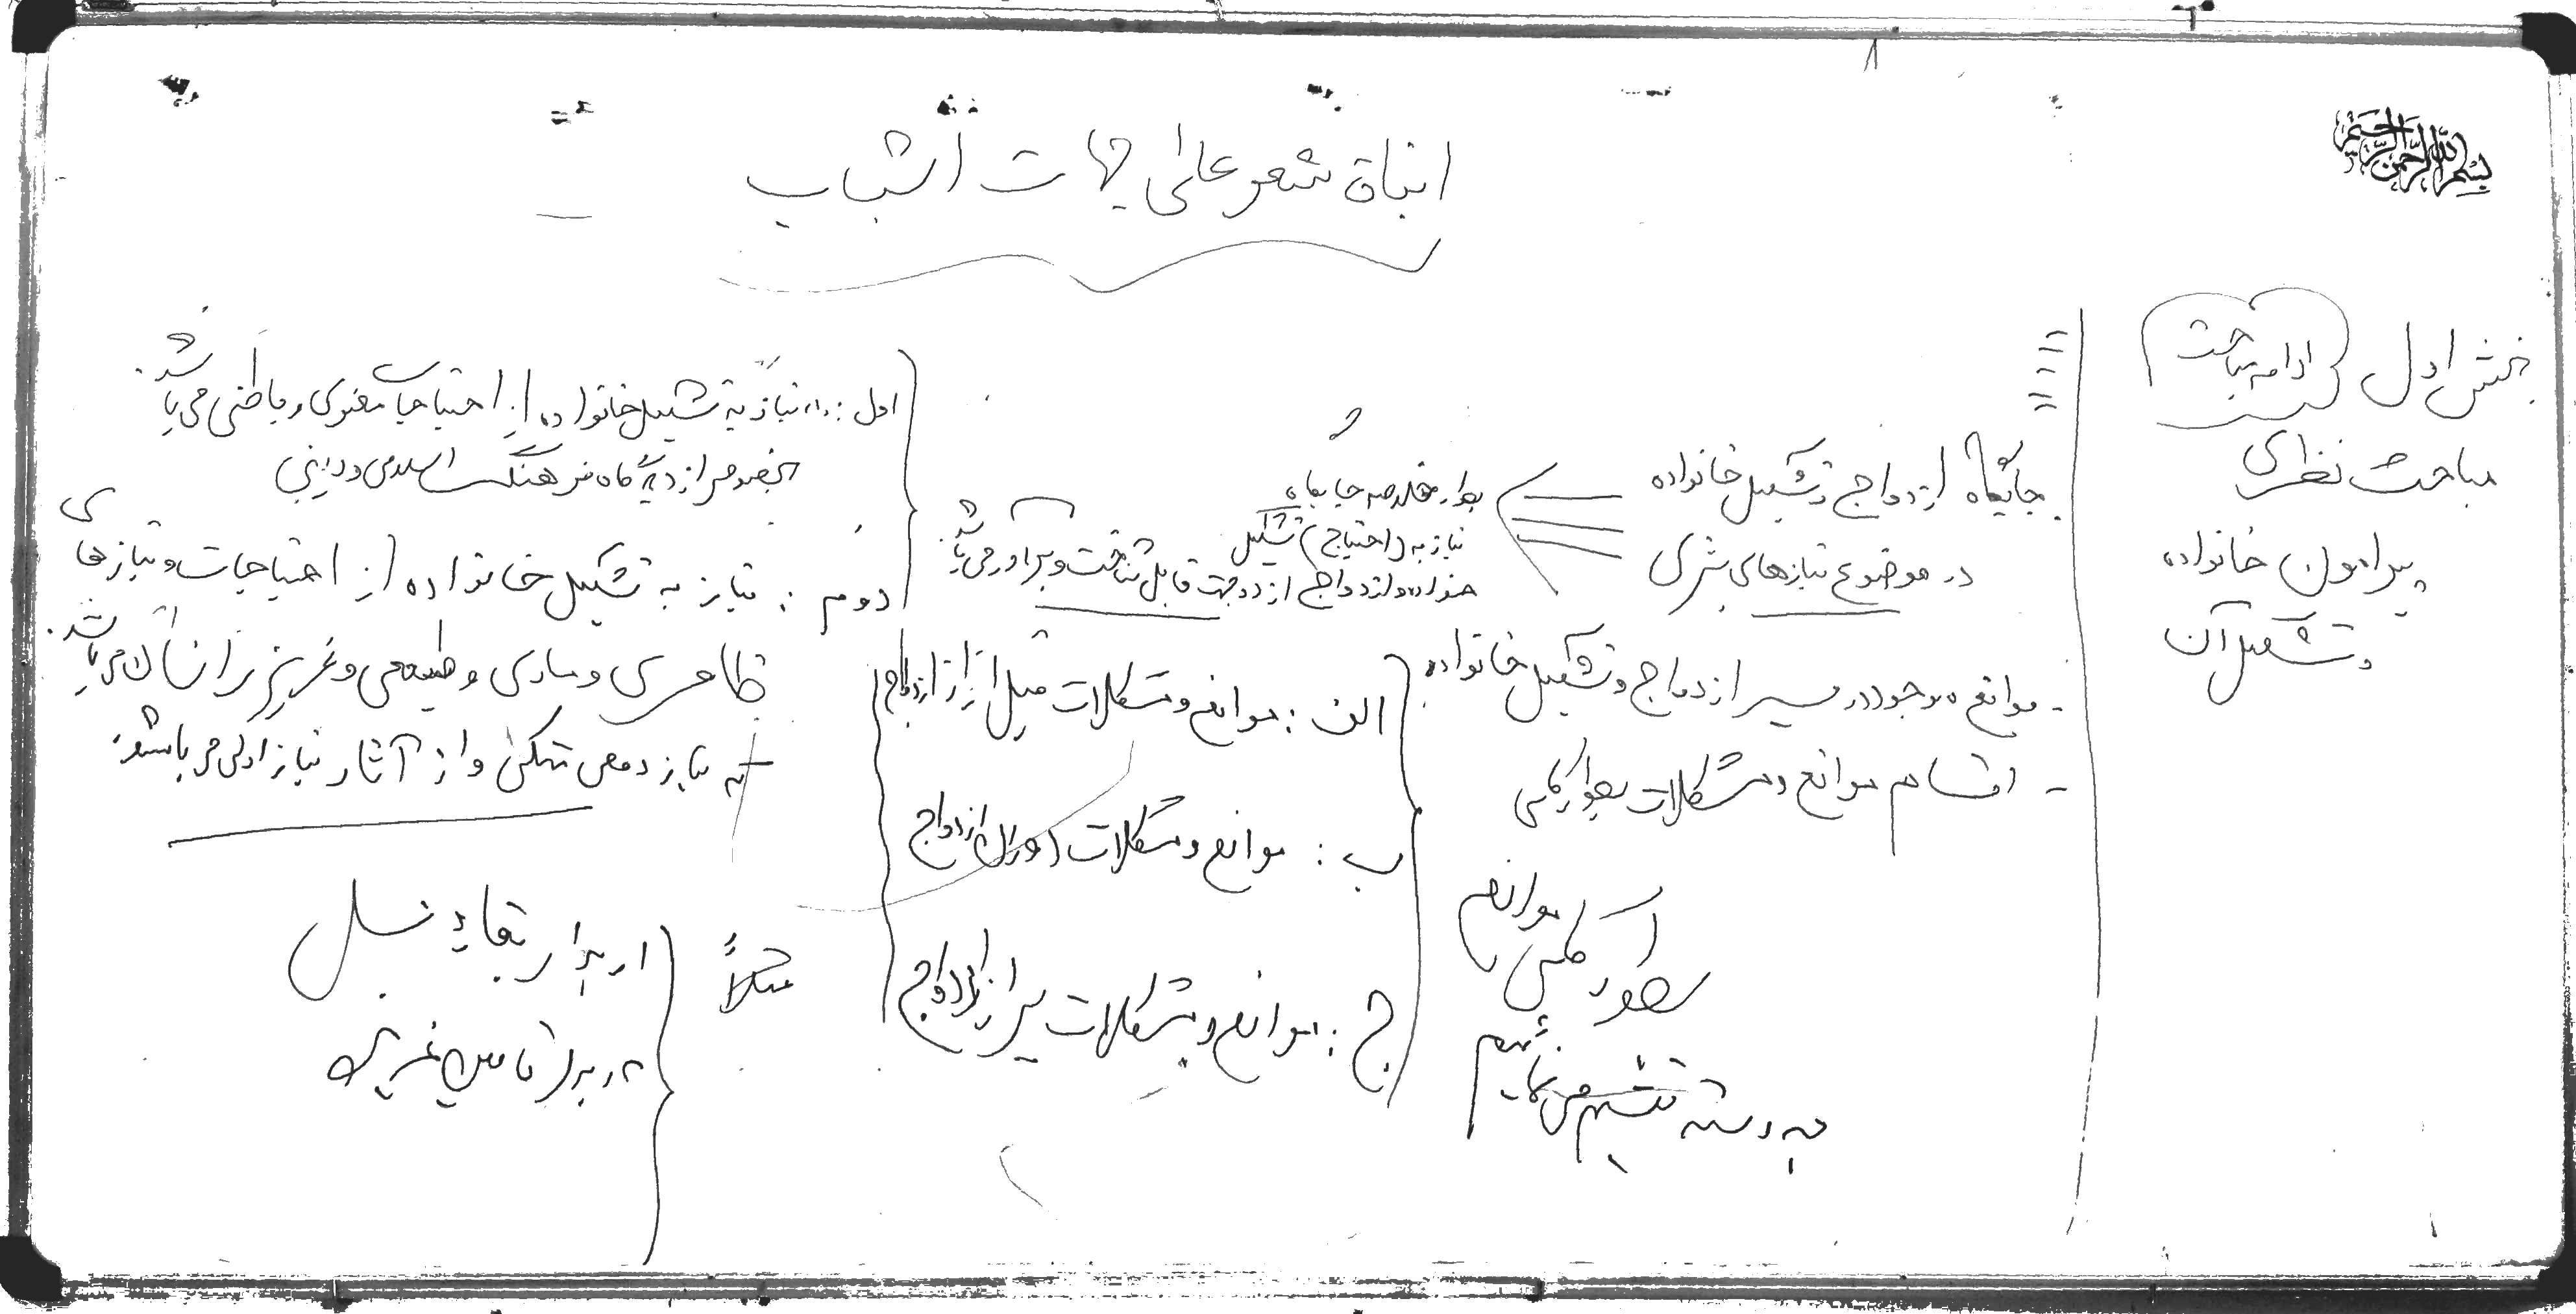 بسم الله الرحمن الرحیم
بخش اول
ادامه مباحث
مباحث نظری
پیرامون خانواده
و تشکیل آن
جایگاه ازدواج و تشکیل خانواده
در موضوع نیازهای بشری
بطور خلاصه جایگاه
نیاز به (احتیاج) تشکیل
خانواده و ازدواج از دو جهت قابل شناخت و برآور می باشد
اول: نیاز به تشکیل خانواده از احتیاجات معنوی و باطنی می باشد.
بخصوص از دیدگاه فرهنگ اسلامی و دینی
دوم: نیاز به تشکیل خانواده از احتیاجات و نیازهای
ظاهری و مادی و طبیعی و غریزی انسان می باشد.
که نیاز دومی متکی و از آثار نیاز اولی می باشد.
- موانع موجود در مسیر ازدواج و تشکیل خانواده
- اقسام موانع و مشکلات بطور کلی
موانع
بطور کلی
به دسته تقسیم می نمائیم
الف: موانع و مشکلات قبل از ازدواج
ب: موانع و مشکلات دوران ازدواج
ج: موانع و مشکلات پس از ازدواج
مثلاً
۱. برای بقاء نسل
۲. برای تامین غریزه